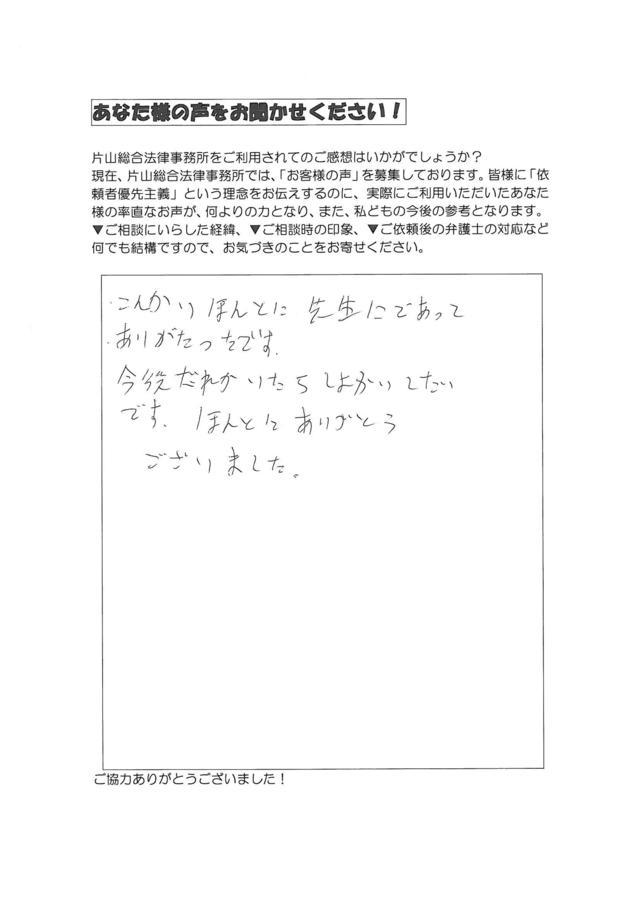 あなた様の声をお聞かせください！
片山総合法律事務所をご利用されてのご感想はいかがでしょうか？
現在、片山総合法律事務所では、「お客様の声」を募集しております。皆様に「依
頼者優先主義」という理念をお伝えするのに、実際にご利用いただいたあなた
様の率直なお声が、何よりの力となり、また、私どもの今後の参考となります。
▼ご相談にいらした経緯、▼ご相談時の印象、▼ご依頼後の弁護士の対応など
何でも結構ですので、お気づきのことをお寄せください。
・こんかいほんとに 先生にであって
・ありがたったです.
今後だれかいたらしょかいしたい
です. ほんとにありがとう
ございました。
ご協力ありがとうございました！